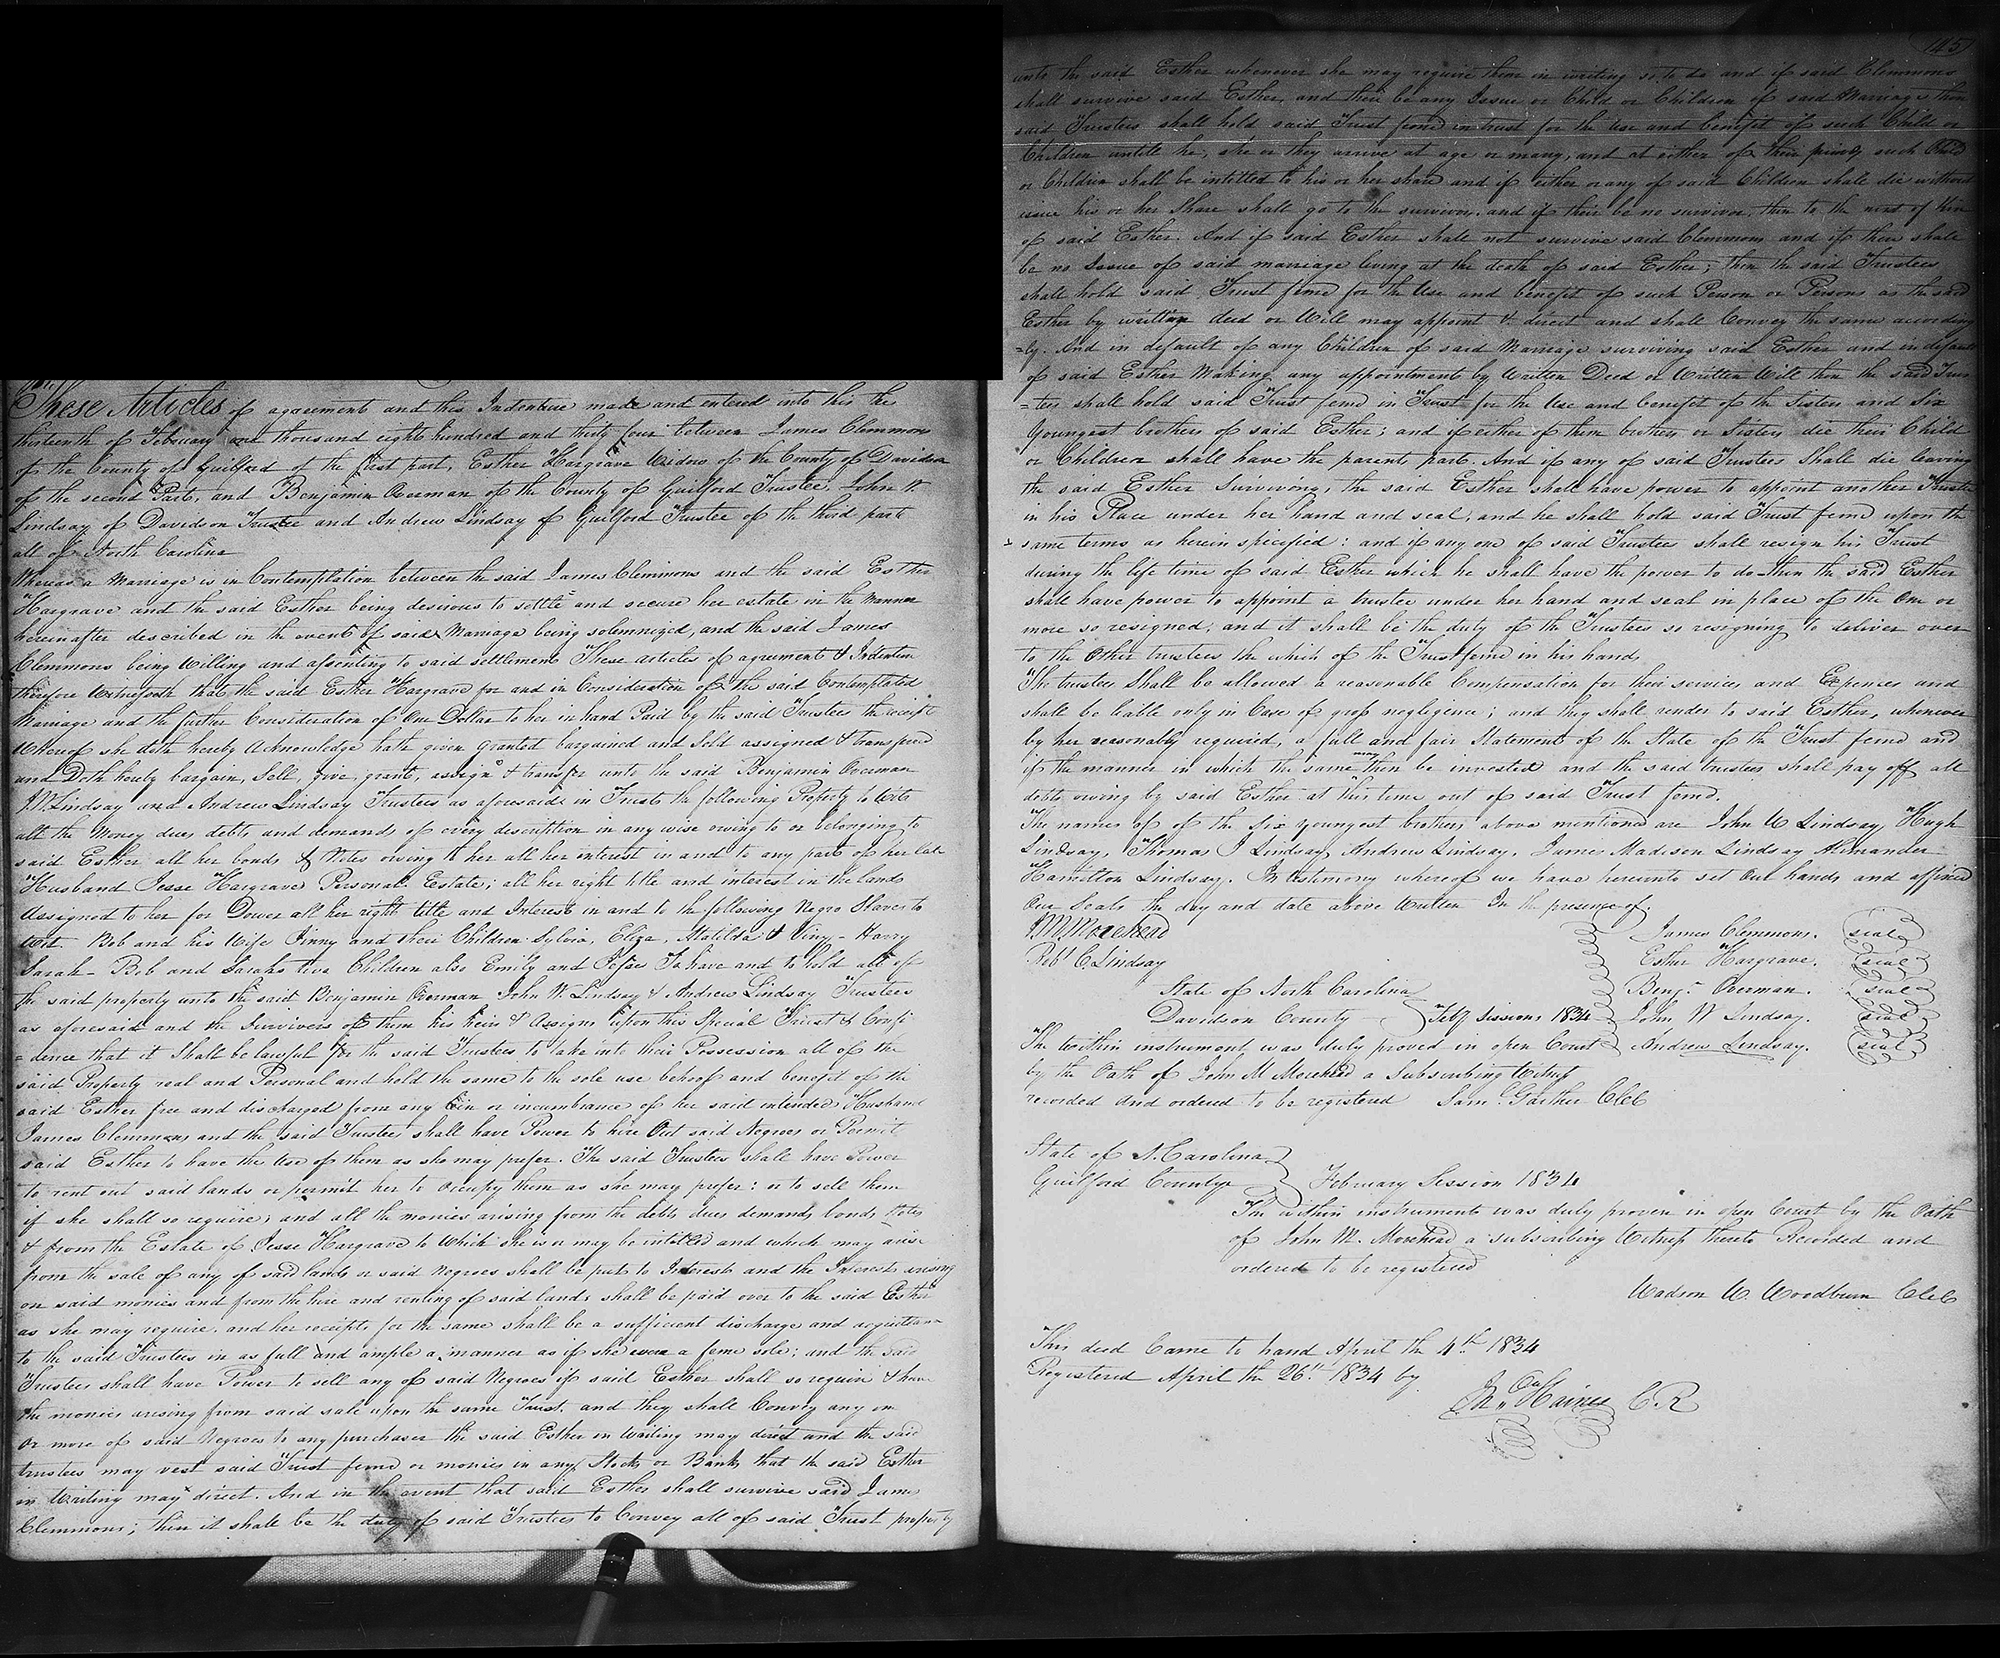 These Articles of agreement and this Indenture made and entered into this the
thirteenth of February one thousand eight hundred and thirty four between James Clemmons
of the County of Guilford of the first part, Esther Hargrave Widow of the County of Davidson
of the second Part, and Benjamin Overman of the County of Guilford Trustee, John W.
Lindsay of Davidson Trustee and Andrew Lindsay of Guilford Trustee of the third part
all of North Carolina
Whereas a Marriage is in Contemplation between the said James Clemmons and the said Esther
Hargrave and the said Esther being desirous to settle and secure her estate in the Manner
hereinafter described in the event of said Marriage being solemnized, and the said James
Clemmons being Willing and assenting to said settlement These articles of agreement & Indenture
therefore Witnesseth that the said Esther Hargrave for and in Consideration of the said Contemplated
Marriage and the further Consideration of One Dollar to her in hand Paid by the said Trustees the receipt
Whereof she doth hereby acknowledge hath given granted bargained and Sold assigned & transfered
and Doth heuby bargain, Sell, give, grant, assign & transfer unto the said Benjamin Overman
J W Lindsay and Andrew Lindsay Trustees as aforesaid in Trust the following Property to Wit
all the Money dues debts and demands of every description in any wise owing to or belonging to
said Esther all her bonds & Notes owing to her all her interest in and to any part of her late
Husband Jesse Hargrave Personal Estate; all her right title and interest in the lands
Assigned to her for Dower all her right title and Interest in and to the following Negro Slaves to
Wit. Bob and his Wife Pinny and their Children Sylvia, Eliza, Matilda & Viny - Harry
Sarah - Bob and Sarahs two Children also Emily and Jesse To have and to hold all of
the said property unto the said Benjamin Overman John W. Lindsay & Andrew Lindsay Trustees
as aforesaid and the Survivers of them his heirs & Assigns upon this Special Trust & Confi
=dence that it Shall be lawful for the said Trustees to take into their Possession all of the
said Property real and Personal and hold the same to the sole use behoof and benefit of the
said Esther free and discharged from any Lein or incumbrance of her said intended Husband
James Clemmons and the said Trustees shall have Power to hire Out said Negroes or Permit
said Esther to have the Use of them as she may prefer. The said Trustees shall have Power
to rent out said lands or permit her to Occupy them as she may prefer: or to sell them
if she shall so require; and all the monies arising from the debts dues demands bonds Notes
& from the Estate of Jesse Hargrave to Which she is or may be intitled and which may arise
from the sale of any of said lands or said Negroes shall be put to Interest and the Interest arising
on said monies and from the hire and renting of said lands shall be paid over to the said Esther
as she may require. and her receipts for the same shall be a sufficient discharge and acquittance
to the said Trustees in as full and ample a manner as if she were a feme sole; and the said
Trustees shall have Power to sell any of said Negroes if said Esther shall so require & have
the monies arising from said sale upon the same Trust and they shall Convey any one
or more of said Negroes to any purchaser the said Esther in Writing may direct and the said
trustees may vest said Trust fund or monies in any Stocks or Bank, that the said Esther
in Writing may direct. And in the event that said Esther shall survive said James
Clemmons; then it shall be the duty of said Trustees to Convey all of said Trust property
145
unto the said Esther whenever she may require them in writing so to do and if said Clemmons
shall survive said Esther, and their be any Issue or Child or Children of said Marriage then
said Trustees shall hold said Trust fund in trust for the use and benefit of such Child or
Children untile he, she or they arrive at age or marry, and at either of their periods such Child
or Children shall be intitled to his or her share and if either or any of said Children shall die without
issue his or her Share shall go to the survivor, and if their be no survivor, then to the next of kin
of said Esther. And if said Esther shall not survive said Clemmons and if there shall
be no Issue of said marriage living at the death of said Esther, then the said Trustees
shall hold said Trust fund for the Use and benefit of such Person or Persons as the said
Esther by written deed or Will may appoint & direct and shall Convey the same according
=ly. And in default of any Children of said Marriage surviving said Esther and in default
of said Esther Making any appointment by Written Deed or Written Will then the said Trus
=tees shall hold said Trust fund in Trust for the Use and benefit of the Sisters and Six
Youngest brothers of said Esther; and if either of them brothers or Sisters die their Child
or Children shall have the parents part. And if any of said Trustees Shall die leaving
the said Esther Surviving, the said Esther shall have power to appoint another Trustee
in his Place under her hand and seal, and he shall hold said Trust fund upon the
same terms as herein specified: and if any one of said Trustees shall resign his Trust
during the life time of said Esther which he shall have the power to do then the said Esther
shall have power to appoint a trustee under her hand and seal in place of the One or
more so resigned; and it shall be the duty of the Trustees so resigning to deliver over
to the Other trustees the which of the Trust fund in his hands
The trustees Shall be allowed a reasonable Compensation for their services and Expenses and
shall be liable only in Case of gross neglegence; and they shall render to said Esther, whenever
by her reasonably required, a full and fair Statement of the State of the Trust fund and
if the manner in which the same may then be invested and the said trustees shall pay off all
debts owing by said Esther at this time out of said Trust fund.
The names of of the six youngest brothers above mentioned are John W Lindsay, Hugh
Lindsay, Thomas J Lindsay, Andrew Lindsay, James Madison Lindsay Alexander
Hamilton Lindsay. In testimony whereof we have hereunto set Our hands and affixed
Our Seals the day and date above Written In the presence of
J M Morehead
Robt C. Lindsay
James Clemmons. seal
Esther Hargrave. seal
Benj. Overman. seal
John W Lindsay. seal
Andrew Lindsay. seal
State of North Carolina
Davidson County Feby Sessions 1834
The Within instrument was duly proved in open Court
by the Oath of John M Morehead a Subscribing Witness
recorded and ordered to be registered Saml. Gaither Clk
State of N. Carolina
Guilford County February Session 1834
The within instrument was duly proven in open Court by the Oath
of John M. Morehead a subscribing Witness thereto Recorded and
ordered to be registered
Madson W. Woodburn Clk
This deed Came to hand April the 4th 1834
Registered April the 26th 1834 by
Haines C.R